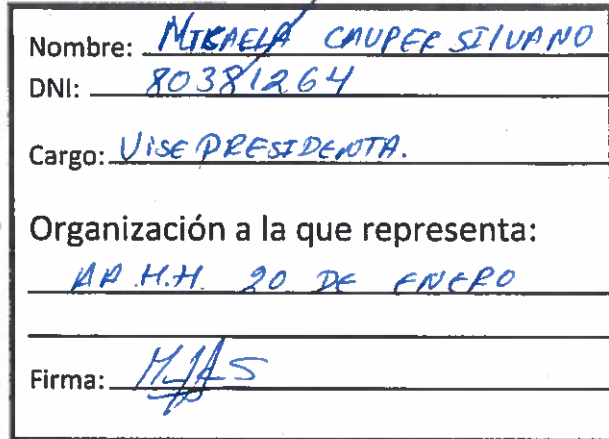 Nombre: MIKAELA CAUPER SILVANO
DNI: 80381264
Cargo: VISE PRESIDENTA.
Organización a la que representa:
AA.H.H. 20 DE ENERO
Firma: